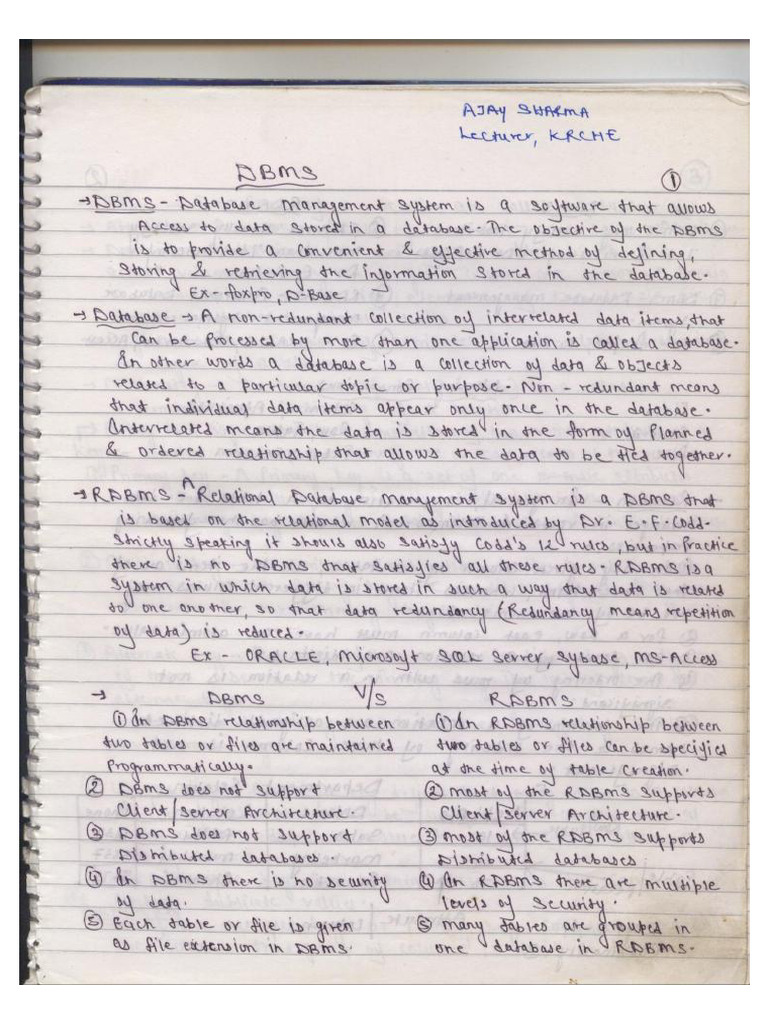 AJAY SHARMA
Lecturer, KRCHE
DBMS
①
→ DBMS - Database management System is a software that allows
Access to data stored in a database. The objective of the DBMS
is to provide a convenient & effective method of defining,
Storing & retrieving the information stored in the database.
Ex - foxpro, D-Base
→ Database → A non-redundant collection of interrelated data items, that
can be processed by more than one application is called a database.
In other words a database is a collection of data & objects
related to a particular topic or purpose. Non - redundant means
that individual data items appear only once in the database.
Interrelated means the data is stored in the form of planned
& ordered relationship that allows the data to be tied together.
→ RDBMS - A Relational Database management system is a DBMS that
is based on the relational model as introduced by Dr. E.F. Codd.
Strictly speaking it should also satisfy Codd's 12 rules, but in Practice
there is no DBMS that satisfies all these rules. RDBMS is a
system in which data is stored in such a way that data is related
to one another, so that data redundancy (Redundancy means repetition
of data) is reduced.
Ex - ORACLE, Microsoft SQL Server, Sybase, MS-Access
→ DBMS V/S RDBMS
① In DBMS relationship between ① In RDBMS relationship between
two tables or files are maintained two tables or files can be specified
Programmatically. at the time of table creation.
② DBMS does not support ② most of the RDBMS supports
Client/Server Architecture. Client/Server Architecture.
③ DBMS does not support ③ most of the RDBMS supports
Distributed databases. Distributed databases
④ In DBMS there is no security ④ In RDBMS there are multiple
of data. levels of Security.
⑤ Each table or file is given ⑤ many tables are grouped in
as file extension in DBMS. one database in RDBMS.